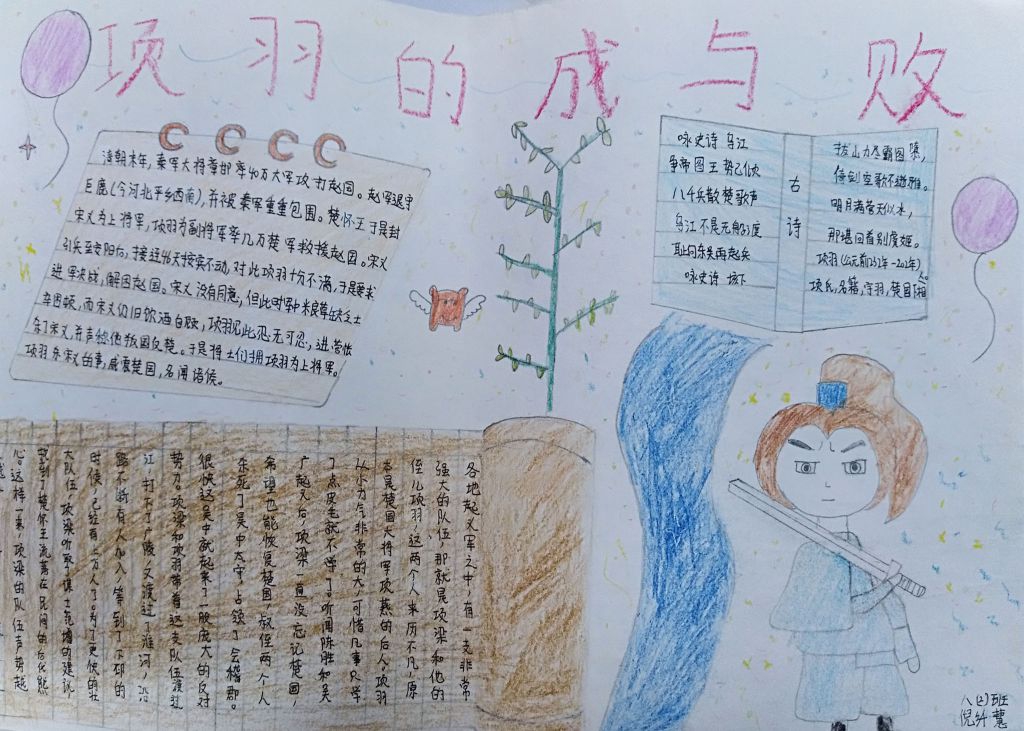 项羽的成与败
清朝末年,秦军大将章邯率40万大军攻打赵国。赵军退守
巨鹿(今河北平乡西南),并被秦军重重包围。楚怀王于是封
宋义为上将军,项羽为副将军率几万楚军救援赵国。宋义
引兵至安阳后,接近46天按兵不动,对此项羽十分不满,于是要求
进军决战,解困赵国。宋义没有同意,但此时军中米良尊缺士士
辛困顿,而宋义仍旧饮酒自顾,项羽见此忍无可忍,进营帐
杀了宋义,并声称他叛国反楚。于是将士们拥项羽为上将军。
项羽杀宋义的事,威震楚国,名闻诸侯。
咏史诗 乌江
争帝图王势已倾
八千兵散楚歌声
乌江不是无船渡
耻向东吴再起兵
咏史诗 垓下
古诗
拔山力尽霸图隳,
倚剑空歌不逝骓。
明月满营天似水,
那堪回首别虞姬。
项羽(公元前232年-202年)
项氏,名籍,字羽,楚国下相
人。
各地起义军之中,有一支非常
强大的队伍,那就是项梁和他的
侄儿项羽,这两个人来历不凡,原
本是楚国大将军项燕的后人,项羽
从小力气非常的大,可惜几事只学
了点皮毛就不学了。听闻陈胜和吴
广起义后,项梁一直没忘记楚国,
希望也能恢复楚国,叔侄两个人
杀死了吴中太守,占领了会稽郡。
很快这吴中就起来了一股庞大的反对
势力。项梁和项羽带着这支队伍渡过
江,打下了广陵,又渡过了淮河,沿
路不断有人加入,等到了下邳的
时候,已经有六万人了。为了更快的壮
大队伍,项梁听取了谋士范增的建议,
找到了楚怀王流落在民间的后代熊
心。这样一来,项梁的队伍声势越
八(2)班
倪舒慧